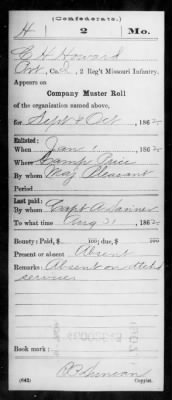 (Confederate.)
H 2 Mo.
E H Howard
Co. , 2 Reg't Missouri Infantry.
Appears on
Company Muster Roll
of the organization named above,
for Sept & Oct, 1862
Enlisted:
When Jan 1, 186
Where Camp Price
By whom Maj Pleasant
Period
Last paid:
By whom Capt A
To what time Aug 31, 1862
Bounty: Paid, $ 100; due, $ 100
Present or absent Absent
Remarks: Absent on
service
Book mark:
(642) Copyist.